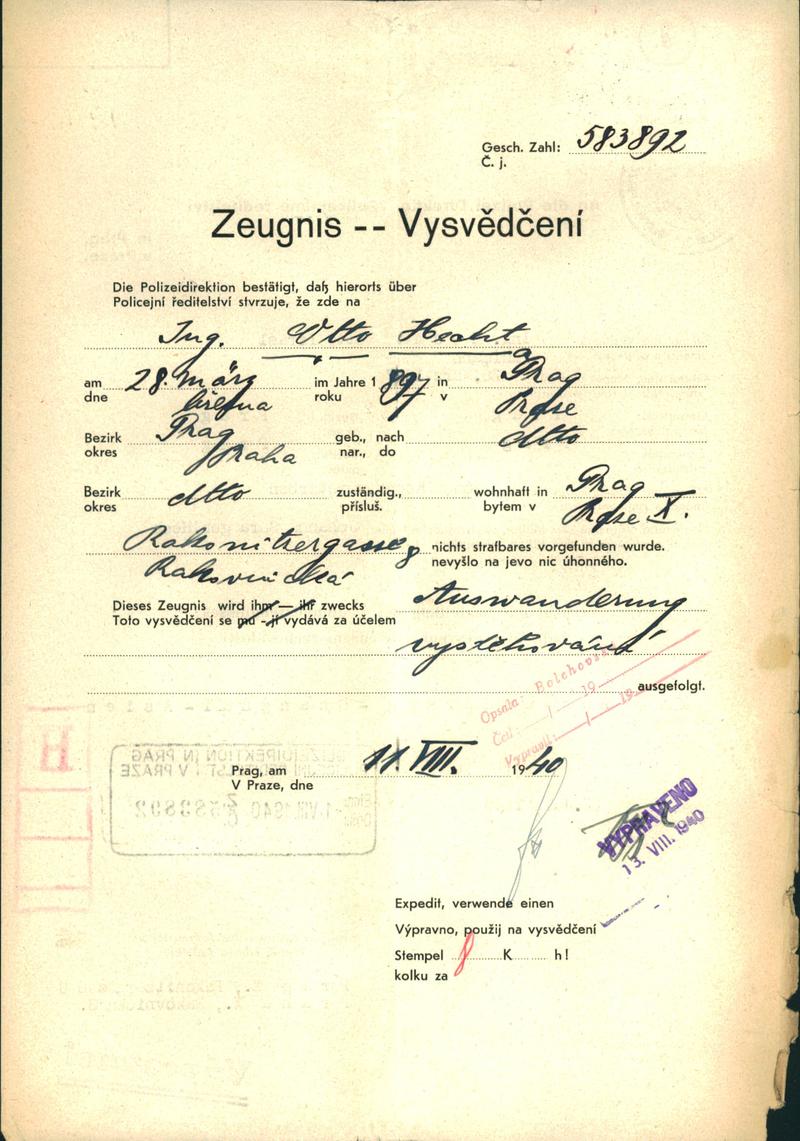 Gesch. Zahl: 583892
Č. j.
Zeugnis -- Vysvědčení
Die Polizeidirektion bestätigt, daß hierorts über
Policejní ředitelství stvrzuje, že zde na
Ing. Otto Hecht
am 28. März im Jahre 1897 in Prag
dne března roku v Praze
Bezirk Prag geb., nach dtto
okres Praha nar., do
Bezirk dtto zuständig., wohnhaft in Prag
okres přísluš. bytem v Praze X.
Rakonitzergasse 8 nichts strafbares vorgefunden wurde.
Rakovnická nevyšlo na jevo nic úhonného.
Dieses Zeugnis wird ihm — ihr zwecks Auswanderung
Toto vysvědčení se mu - jí vydává za účelem
vystěhování
ausgefolgt.
Opsala: Bolehovs
Četl / 19
Vypravil: / 19
POLIZEIDIREKTION IN PRAG
ŘEDITELSTVÍ V PRAZE
1. VIII. 1940 583892
H
Prag, am 11. VIII. 1940
V Praze, dne
VYPRAVENO
13. VIII. 1940
Expedit, verwende einen
Výpravno, použij na vysvědčení
Stempel 8 K h!
kolku za